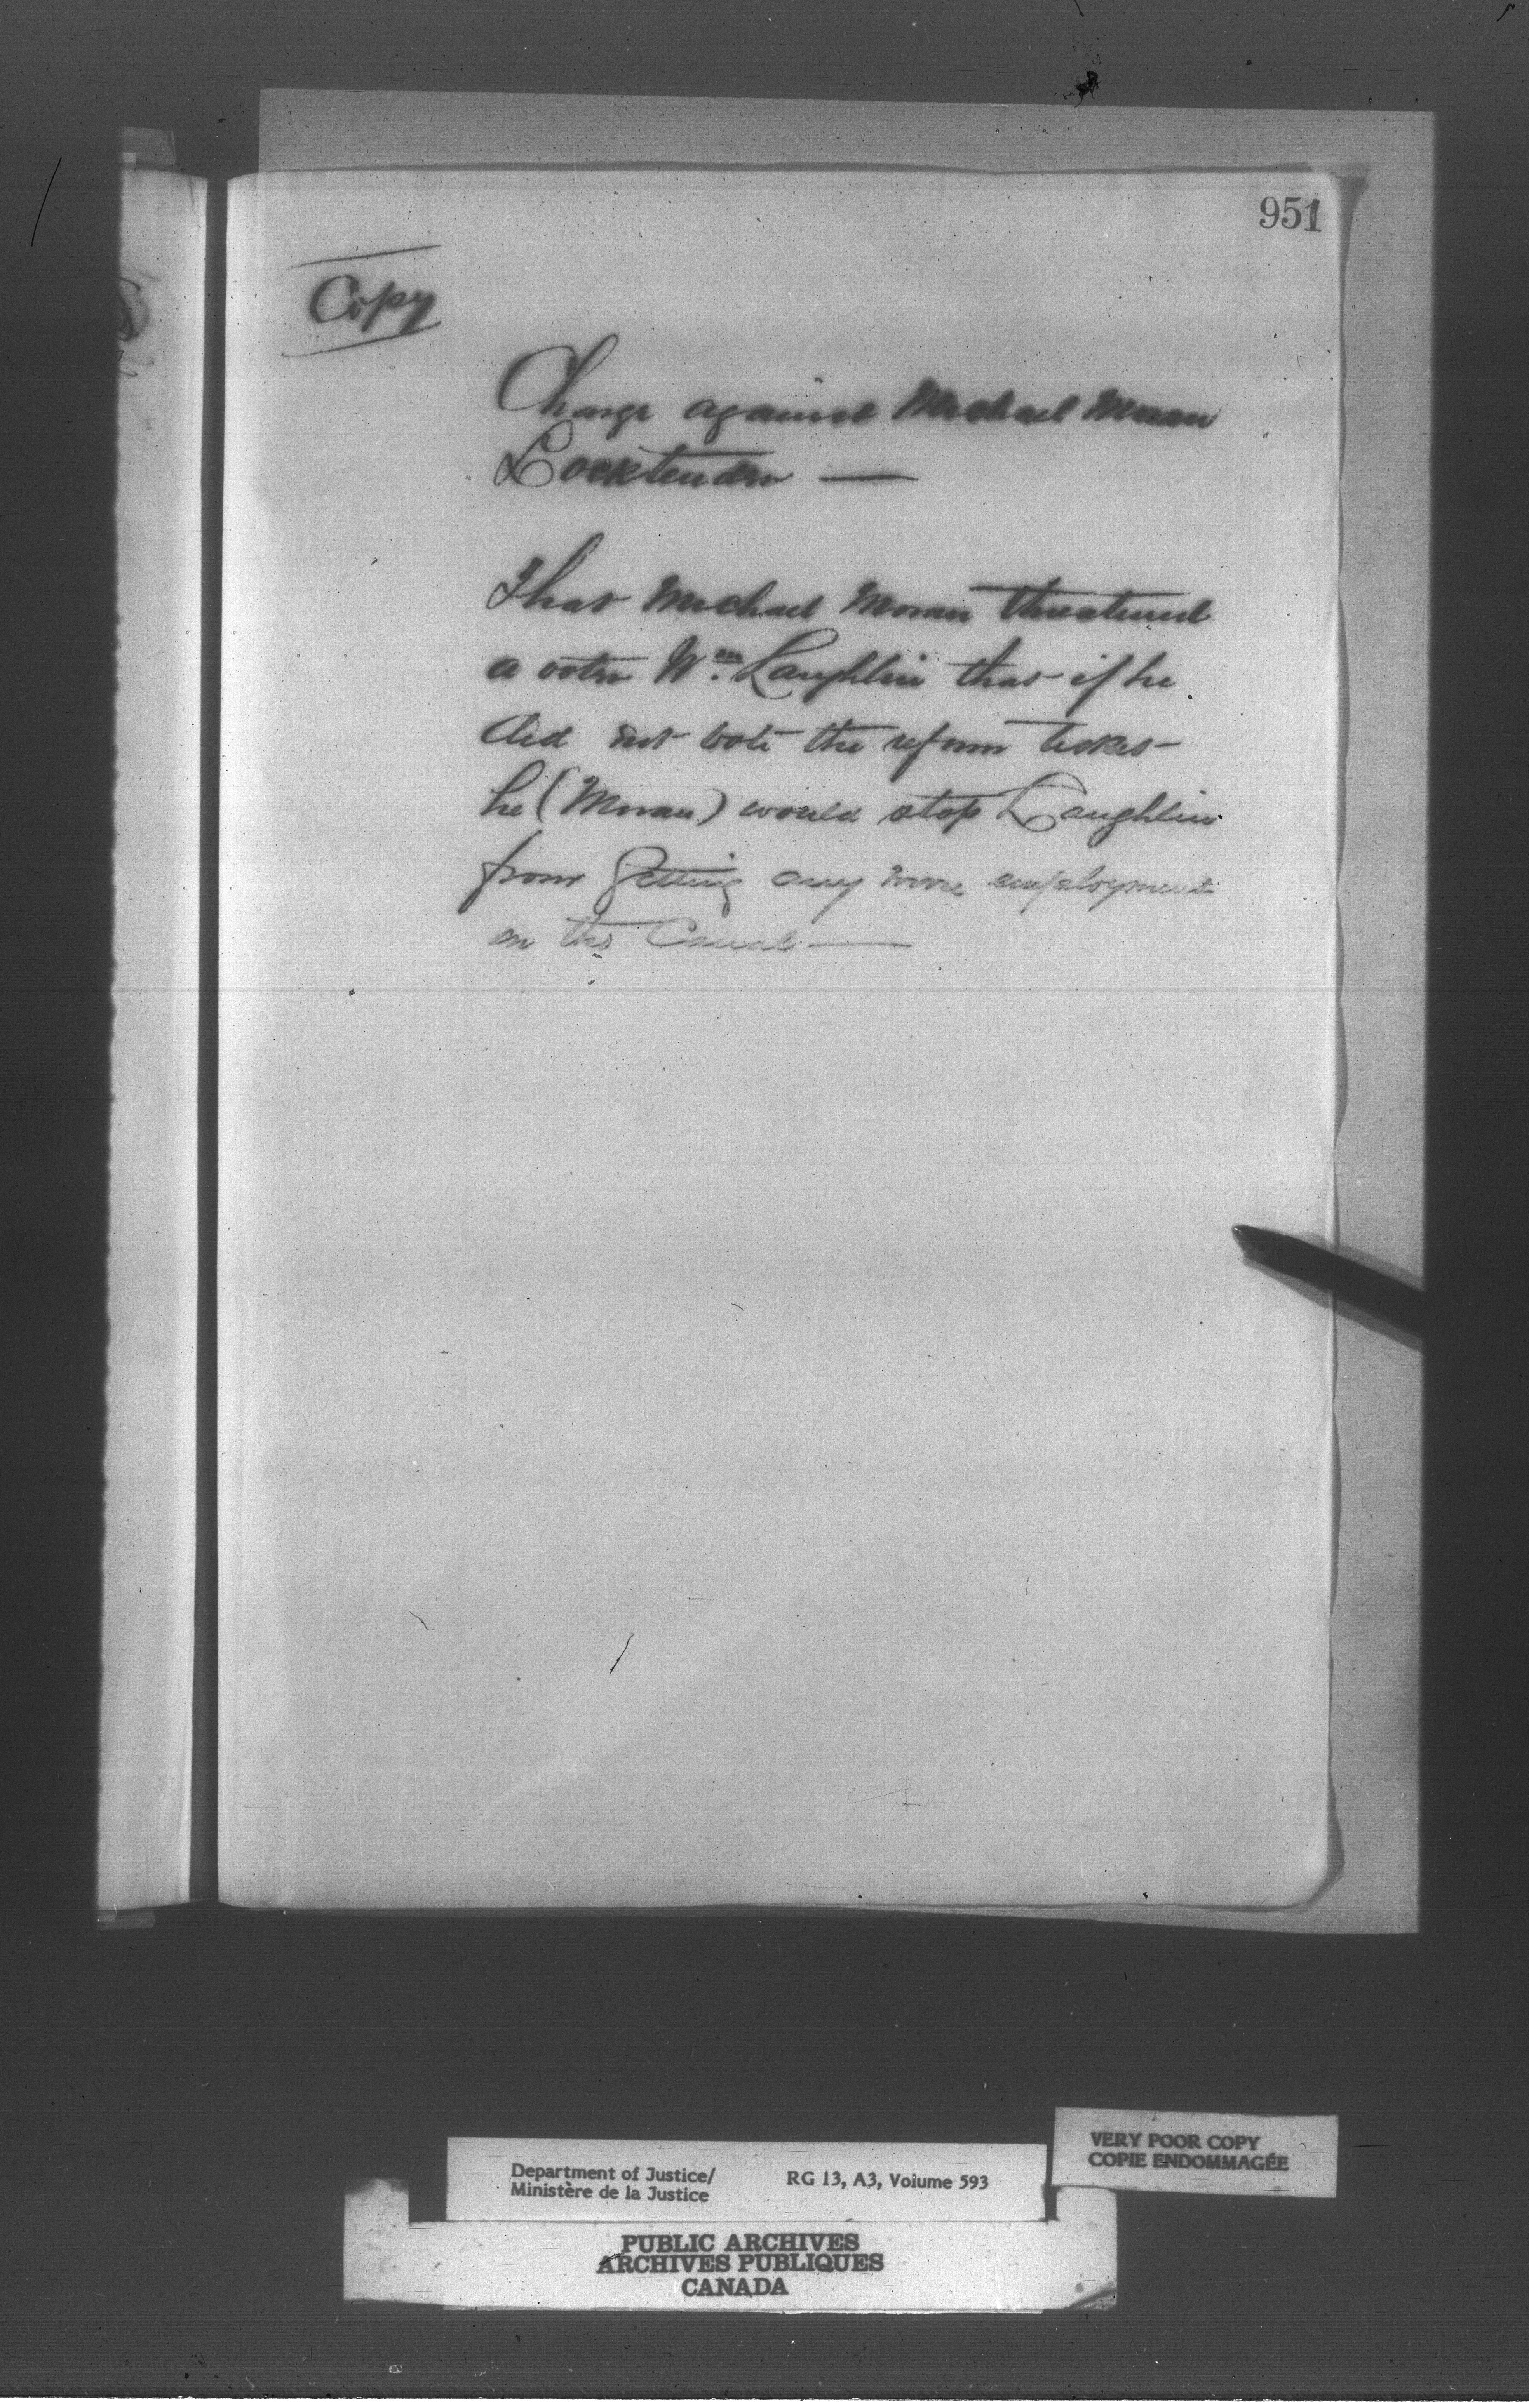 951
Copy
Charge against Michael Moran
Locktender —
That Michael Moran threatened
a voter Wm. Laughlin that if he
did not vote the reform ticket
he (Moran) would stop Laughlin
from getting any more employment
on the Canal —
VERY POOR COPY
COPIE ENDOMMAGÉE
Department of Justice/ RG 13, A3, Volume 593
Ministère de la Justice
PUBLIC ARCHIVES
ARCHIVES PUBLIQUES
CANADA